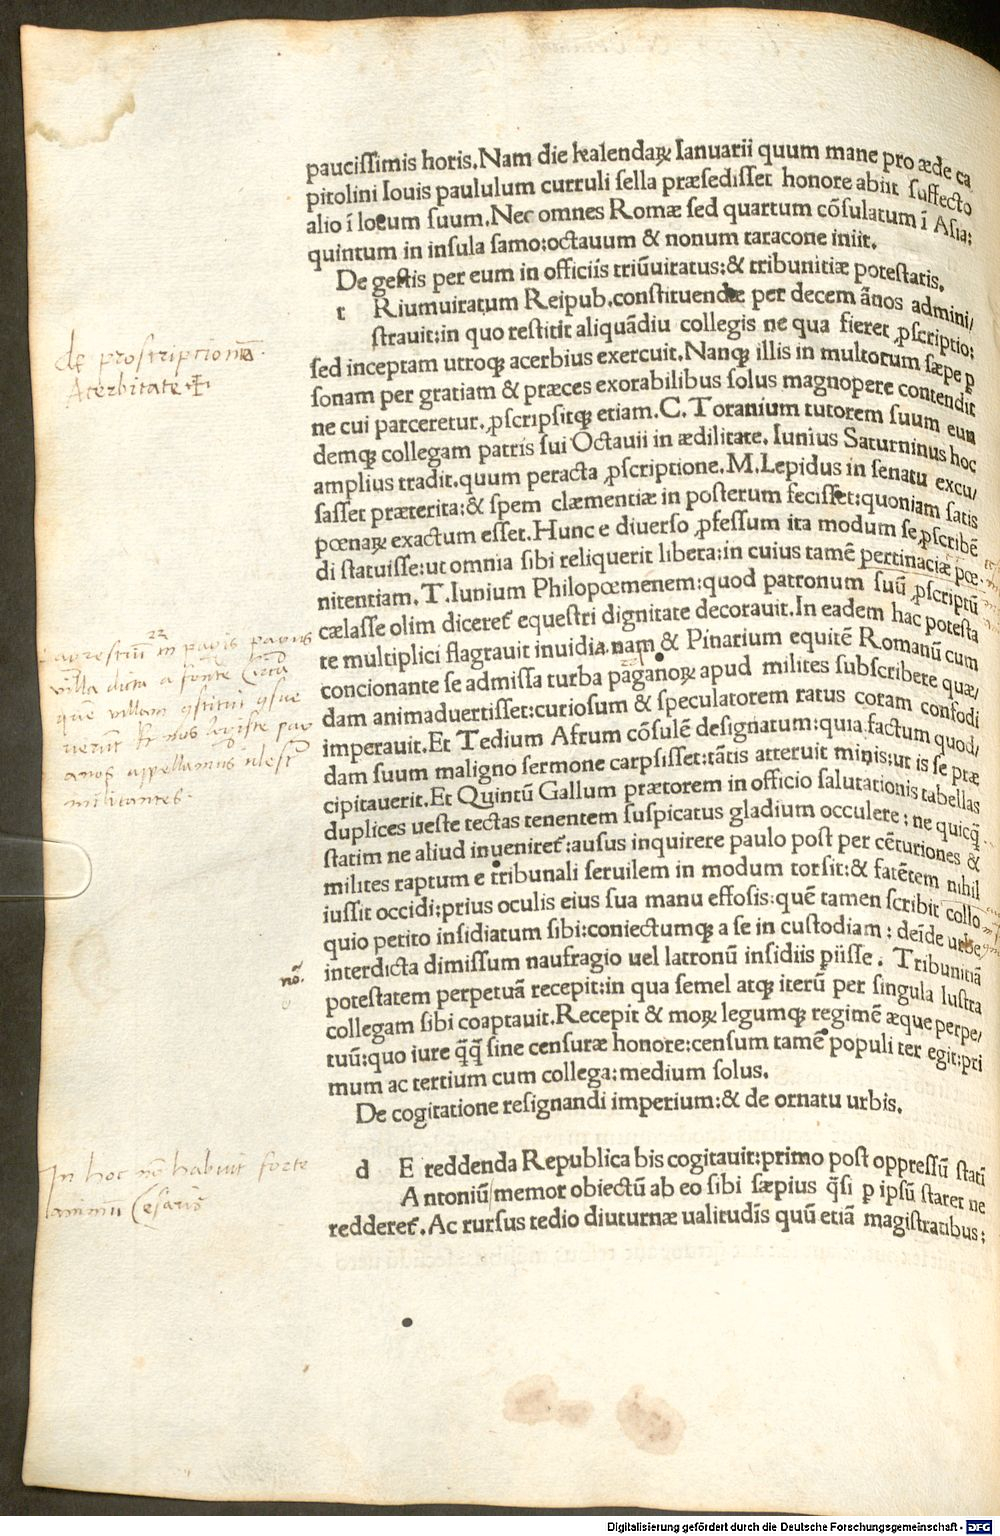 paucissimis horis. Nam die kalendaꝝ Ianuarii quum mane pro æde ca
pitolini Iouis paululum curruli sella præsedisset honore abiit suffecto
alio ī locum suum. Nec omnes Romæ sed quartum cōsulatum ī Asia:
quintum in insula samo: octauum & nonum taracone iniit.
De gestis per eum in officiis triūuiratus: & tribunitiæ potestatis.
t Riumuiratum Reipub. constituendæ per decem ānos admini/
strauit: in quo restitit aliquādiu collegis ne qua fieret ꝓscriptio:
sed inceptam utroqꝫ acerbius exercuit. Nanqꝫ illis in multorum sæpe ꝑ
sonam per gratiam & præces exorabilibus solus magnopere contendit
ne cui parceretur. ꝓscripsitqꝫ etiam. C. Toranium tutorem suum eun
demqꝫ collegam patris sui Octauii in ædilitate. Iunius Saturninus hoc
amplius tradit. quum peracta ꝓscriptione. M. Lepidus in senatu excu/
sasset præterita: & spem clæmentiæ in posterum fecisset: quoniam satis
pœnaꝝ exactum esset. Hunc e diuerso ꝓfessum ita modum se ꝓscribē
di statuisse: ut omnia sibi reliquerit libera: in cuius tamē pertinaciæ pœ.
nitentiam. T. Iunium Philopœmenem: quod patronum suū ꝓscriptū
cælasse olim diceret̃ equestri dignitate decorauit. In eadem hac potesta
te multiplici flagrauit inuidia. nam & Pinarium equitē Romanū cum
concionante se admissa turba paganoꝝ apud milites subscribere quæ/
dam animaduertisset: curiosum & speculatorem ratus coram confodi
imperauit. Et Tedium Afrum cōsulē designatum: quia factum quod/
dam suum maligno sermone carpsisset: tātis atteruit minis: ut is se præ
cipitauerit. Et Quintū Gallum prætorem in officio salutationis tabellas
duplices ueste tectas tenentem suspicatus gladium occulere: ne quicq̄
statim ne aliud inueniret̃: ausus inquirere paulo post per cēturiones &
milites raptum e tribunali seruilem in modum torsit: & fatētem nihil
iussit occidi: prius oculis eius sua manu effosis: quē tamen scribit collo
quio petito insidiatum sibi: coniectumqꝫ a se in custodiam: deīde urbe
interdicta dimissum naufragio uel latronū insidiis piisse. Tribunitiā
potestatem perpetuā recepit: in qua semel atqꝫ iterū per singula lustra
collegam sibi coaptauit. Recepit & moꝝ legumqꝫ regimē æque perpe/
tuū: quo iure q̄q̄ sine censuræ honore: censum tamē populi ter egit: pri
mum ac tertium cum collega: medium solus.
De cogitatione resignandi imperium: & de ornatu urbis.
d E reddenda Republica bis cogitauit: primo post oppressū stati
Antoniū memor obiectū ab eo sibi sæpius q̄si ꝑ ipsū staret ne
redderet̃. Ac rursus tedio diuturnæ ualitudīs quū etiā magistratibus:
de proscriptionū
Acerbitate
agrestiū in pagis pagus
villa dicta a fonte
militantes.
nō.
In hoc nō habuit forte
animū Cesaris
Digitalisierung gefördert durch die Deutsche Forschungsgemeinschaft - DFG